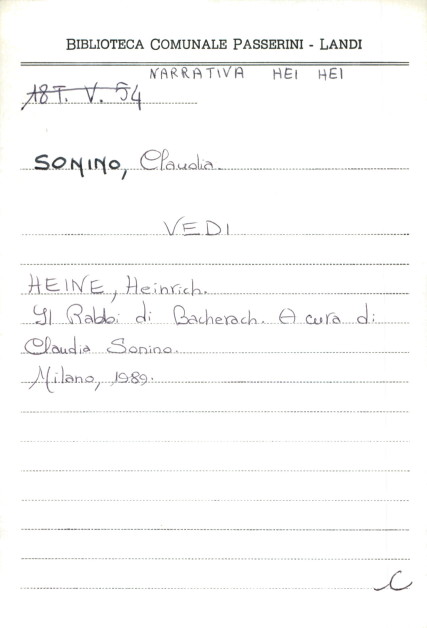 BIBLIOTECA COMUNALE PASSERINI - LANDI
NARRATIVA HEI HEI
18T. V. 54
SONINO, Claudia.
VEDI
HEINE, Heinrich.
Il Rabbi di Bacherach. A cura di
Claudia Sonino.
Milano, 1989.
C